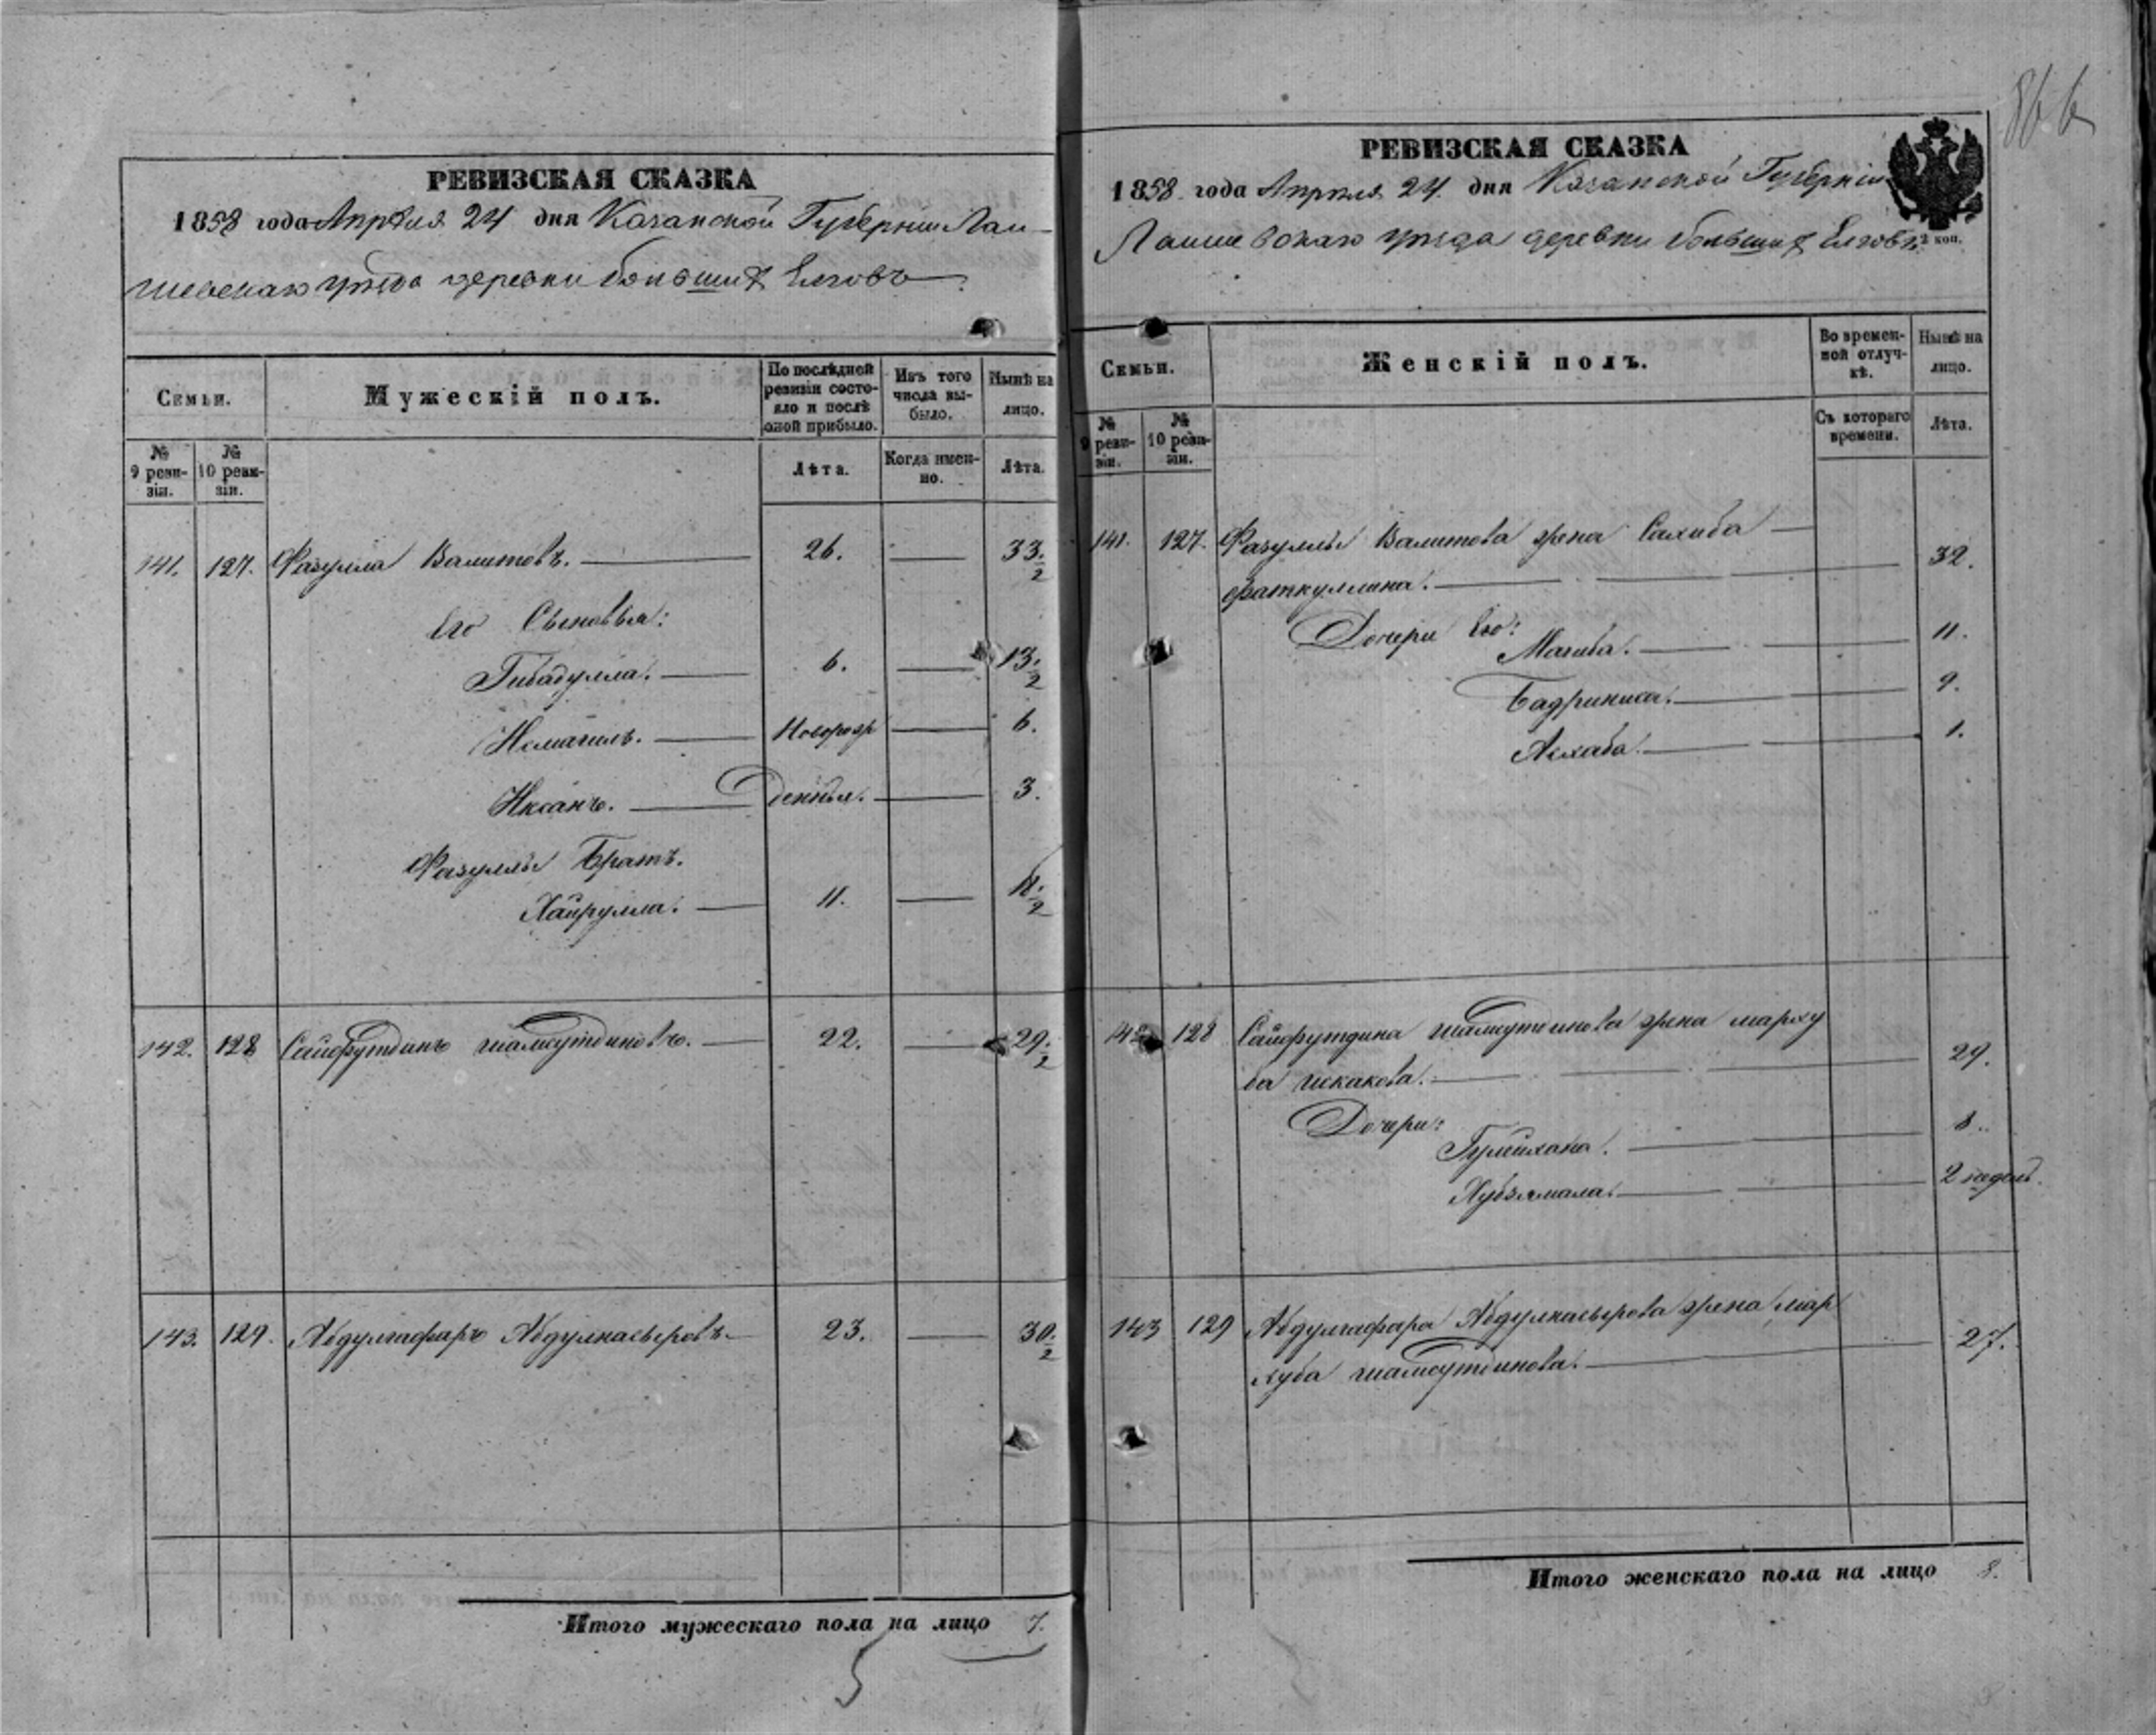 866
РЕВИЗСКАЯ СКАЗКА
1858 года Апреля 24 дня Казанской Губернии Лаи-
шевскаго уѣзда деревни большихъ Елговъ
Семьи.
Мужескій полъ.
По послѣдней ревизіи состояло и послѣ оной прибыло.
Изъ того числа выбыло.
Нынѣ на лицо.
№ 9 ревизіи.
№ 10 ревизіи.
Лѣта.
Когда именно.
Лѣта.
141. 127. Фазулла Валитовъ. 26. 33. 2
Его Сыновья:
Гибадулла. 6. 13. 2
Исмагилъ. Новорож 6.
Иксанъ. денныя. 3.
Фазуллы Братъ.
Хайрулла. 11. 2
142. 128 Сайфутдинъ шамсутдиновъ. 22. 29. 2
143. 129. Абдулгафаръ Абдулнасыровъ. 23. 30. 2
Итого мужескаго пола на лицо 7.
5
РЕВИЗСКАЯ СКАЗКА
1858 года Апреля 24. дня Казанской Губерніи
Лаишевскаго уѣзда деревни большихъ Елговъ.
2 коп.
Семьи.
Женскій полъ.
Во временной отлучкѣ.
Нынѣ на лицо.
№ 9 ревизіи.
№ 10 ревизіи.
Съ котораго времени.
Лѣта.
141. 127. Фазуллы Валитова жена Сахиба
фаткуллина. 32.
Дочери Его:
Магиба. 11.
Бадриниса. 9.
Асхаба. 1.
142 128 Сайфутдина шамсутдинова жена марху
ба искакова. 29.
Дочери:
Гулихана. 8.
Хубзямала. 2 недель.
143 129 Абдулгафара Абдулнасырова жена мар
хуба шамсутдинова. 27.
Итого женскаго пола на лицо 8.